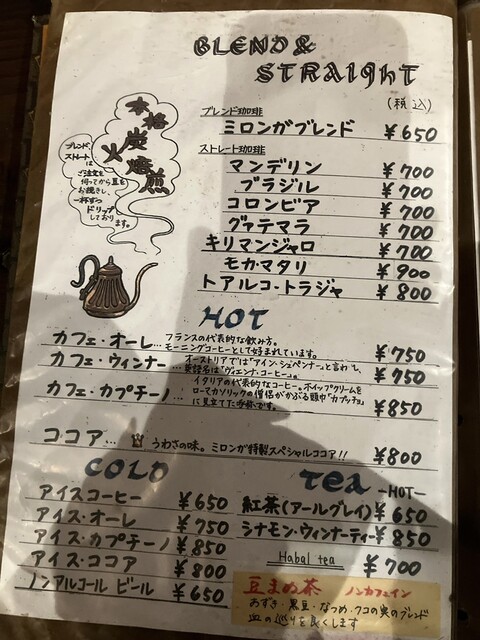 BLEND &
STRAIGHT
(税込)
本格
炭火焙煎
ブレンド、
ストレートは
ご注文を
伺ってから豆を
お挽きし、
一杯ずつ
ドリップ
しております。
ブレンド珈琲
ミロンガブレンド ¥650
ストレート珈琲
マンデリン ¥700
ブラジル ¥700
コロンビア ¥700
グァテマラ ¥700
キリマンジャロ ¥700
モカ・マタリ ¥900
トアルコ・トラジャ ¥800
HOT
カフェ・オーレ…フランスの代表的な飲み方。
モーニングコーヒーとして好まれています。 ¥750
カフェ・ウィンナー…オーストリアでは「アイン・シュペンナー」と言われ、
英語名は「ヴィエンナ・コーヒー」。 ¥750
カフェ・カプチーノ…イタリアの代表的なコーヒー。ホイップクリームを
ローマカソリックの僧侶がかぶる頭巾「カプッチョ」
に見立てた呼称です。 ¥850
ココア… うわさの味。ミロンガ特製スペシャルココア!! ¥800
COLD
アイスコーヒー ¥650
アイス・オーレ ¥750
アイス・カプチーノ ¥850
アイス・ココア ¥800
ノンアルコール ビール ¥650
Tea -HOT-
紅茶(アールグレイ) ¥650
シナモン・ウィンナーティー ¥850
Habal tea ¥700
豆まめ茶 ノンカフェイン
あずき・黒豆・なつめ・クコの実のブレンド
血の巡りを良くします